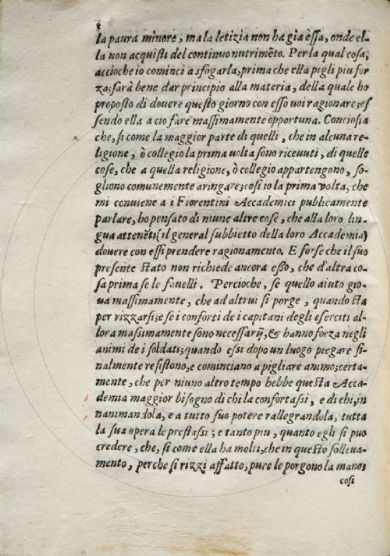 la paura minore, ma la letizia non ha gia essa, onde el-
la non acquisti del continuo nutrimẽto. Per la qual cosa,
accioche io cominci a sfogarla, prima che ella pigli piu for
za; sarà bene dar principio alla materia, della quale ho
proposto di douere questo giorno con esso uoi ragionare; es
sendo ella a ciò fare massimamente opportuna. Conciosia
che, si come la maggior parte di quelli, che in alcuna re-
ligione, ò collegio la prima uolta sono riceuuti, di quelle
cose, che a quella religione, ò collegio appartengono, so-
gliono comunemente aringare; cosi io la prima uolta, che
mi conuiene a i Fiorentini Accademici publicamente
parlare, ho pensato di niune altre cose, che alla loro lin
gua attenẽti (il general subbietto della loro Accademia)
douere con essi prendere ragionamento. E forse che il suo
presente stato non richiede ancora esso, che d'altra co-
sa prima se le fauelli. Percioche, se quello aiuto gio-
ua massimamente, che ad altrui si porge, quando sta
per rizzarsi; e se i conforti de i capitani degli eserciti al-
lora massimamente sono necessarij, & hanno forza negli
animi de i soldati; quando essi dopo un luogo piegare fi-
nalmente resistono, e cominciano a pigliare animo; certa-
mente, che per niuno altro tempo hebbe questa Acca-
demia maggior bisogno di chi la confortassi, e di chi, in-
nanimandola, e a tutto suo potere rallegrandola, tutta
la sua opera le prestassi; e tanto piu, quanto egli si puo
credere, che, si come ella ha molti, che in questo solleua-
mento, perche si rizzi affatto, pure le porgono la mano;
cosi